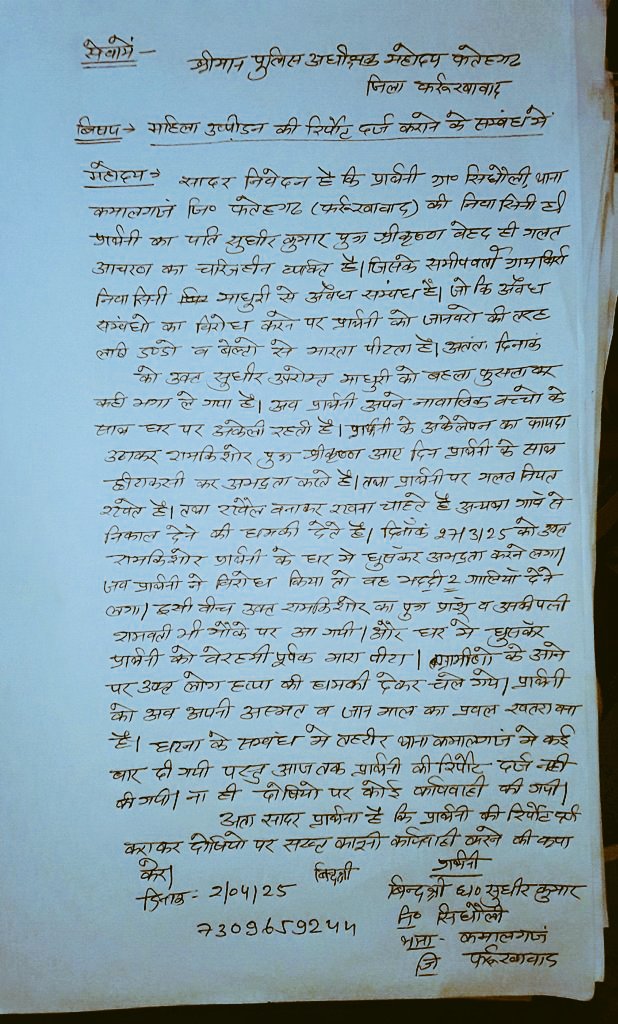 सेवामें -
श्रीमान पुलिस अधीक्षक महोदय फतेहगढ
जिला फर्रूखाबाद
बिषय → महिला उत्पीडन की रिर्पोट दर्ज कराने के सम्बंध में
महोदय → सादर निवेदन है कि प्रार्थनी ग्रा० सिंधौली, थाना
कमालगजं जि० फतेहगढ (फर्रूखाबाद) की निवासिनी है।
प्रार्थनी का पति सुधीर कुमार पुत्र श्रीकृष्ण बेहद ही गलत
आचरण का चरित्रहीन व्यक्ति है। जिसके समीपवर्ती ग्राम
निवासिनी माधुरी से अबैध सम्बंध है। जो कि अबैध
सम्बंधो का विरोध करने पर प्रार्थनी को जानवरो की तरह
लाठी डण्डो व बेल्टो से मारता पीटता है। दिनांक
को उक्त सुधीर उपरोक्त माधुरी को बहला फुसला कर
कही भगा ले गया है। अब प्रार्थनी अपने नाबालिक बच्चो के
साथ घर पर अकेली रहती है। प्रार्थनी के अकेलेपन का फायदा
उठाकर रामकिशोर पुत्र श्रीकृष्ण आए दिन प्रार्थनी के साथ
छीटाकसी कर अभद्रता करते है। तथा प्रार्थनी पर गलत नियत
रखते है। तथा रखैल बनाकर रखना चाहते है अन्यथा गांव से
निकाल देने की धामकी देते है। दिनाँक 27/3/25 को उक्त
रामकिशोर प्रार्थनी के घर मे घुसकर अभद्रता करने लगा।
जब प्रार्थनी ने विरोध किया तो वह भद्दी 2 गालियां देने
लगा। इसी बीच उक्त रामकिशोर का पुत्र व उसकी पत्नी
रामवती भी मौके पर आ गयी। और घर मे घुसकर
प्रार्थनी को बेरहमी पूर्वक मारा पीटा। ग्रामीणो के आने
पर उक्त लोग हत्या की धामकी देकर चले गये। प्रार्थनी
को अब अपनी अस्मत व जान माल का प्रवल खतरा बना
है। घटना के सम्बंध मे तहरीर थाना कमालगजं मे कई
बार दी गयी परन्तु आज तक प्रार्थनी की रिर्पोट दर्ज नही
की गयी। ना ही दोषियो पर कोई कार्यवाही की गयी।
अतः सादर प्रार्थना है कि प्रार्थनी की रिर्पोट दर्ज
कराकर दोषियो पर सख्त कानूनी कार्यवाही करने की कृपा
करे।
दिनांक - 2/04/25
7309659244
बिन्दश्री
प्रार्थनी
बिन्दश्री w/o सुधीर कुमार
नि० सिंधौली
थाना - कमालगजं
जि फर्रूखाबाद